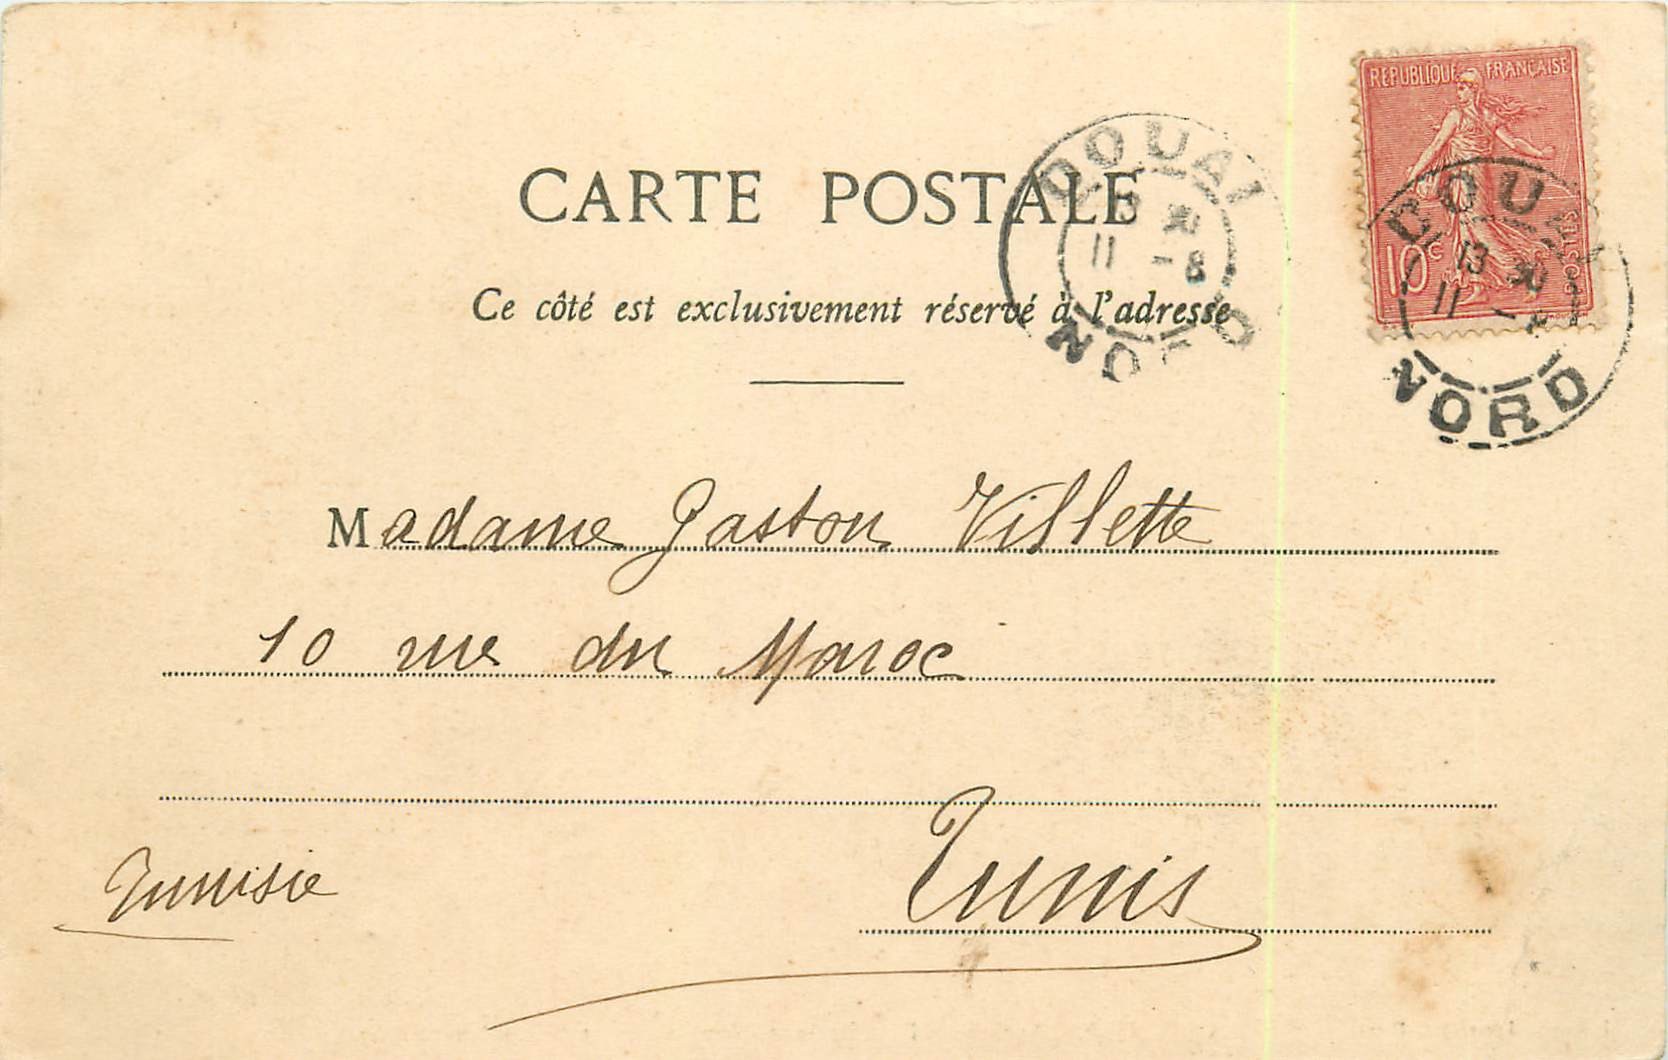 REPUBLIQUE FRANÇAISE
10c
CARTE POSTALE
DOUAI
11 -8
NORD
DOUAI
13 30
11 -8
NORD
Ce côté est exclusivement réservé à l'adresse
Madame Gaston Villette
10 rue du Maroc
Tunis
Tunisie